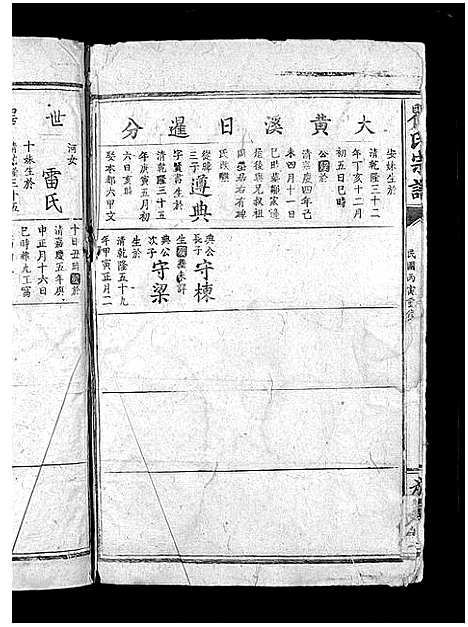 氏宗譜
民國丙寅重修
大黃溪日暹分
安妹生於
清乾隆三十二
年丁亥十二月
初五日巳時
公歿於
清嘉慶四年己
未四月十一日
巳時
是後與兄叔祖
同墓右有碑
氏改醮
從
三子遵典
字賢書生於
清乾隆三十五
年庚寅五月初
六日亥時
娶本都六甲文
典公長子守棟
生歿葬未詳
典公次子守梁
生於
清乾隆五十九
年甲寅正月二
世
河女雷氏
十妹生於
清乾隆三十五
十日丑時歿於
清嘉慶五年庚
申正月十六日
巳時葬九工窩